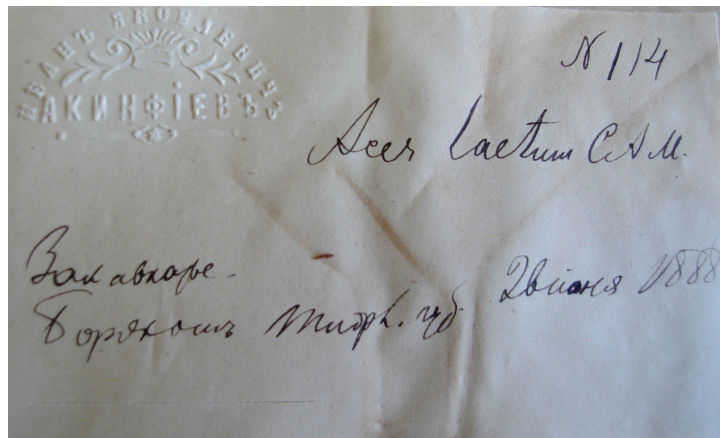 ИВАНЪ ЯКОВЛЕВИЧЪ
АКИНФІЕВЪ
N 114
Acer laetum C A M.
Закавказье.
Боржомъ Тифл. губ. 28 июня 1888